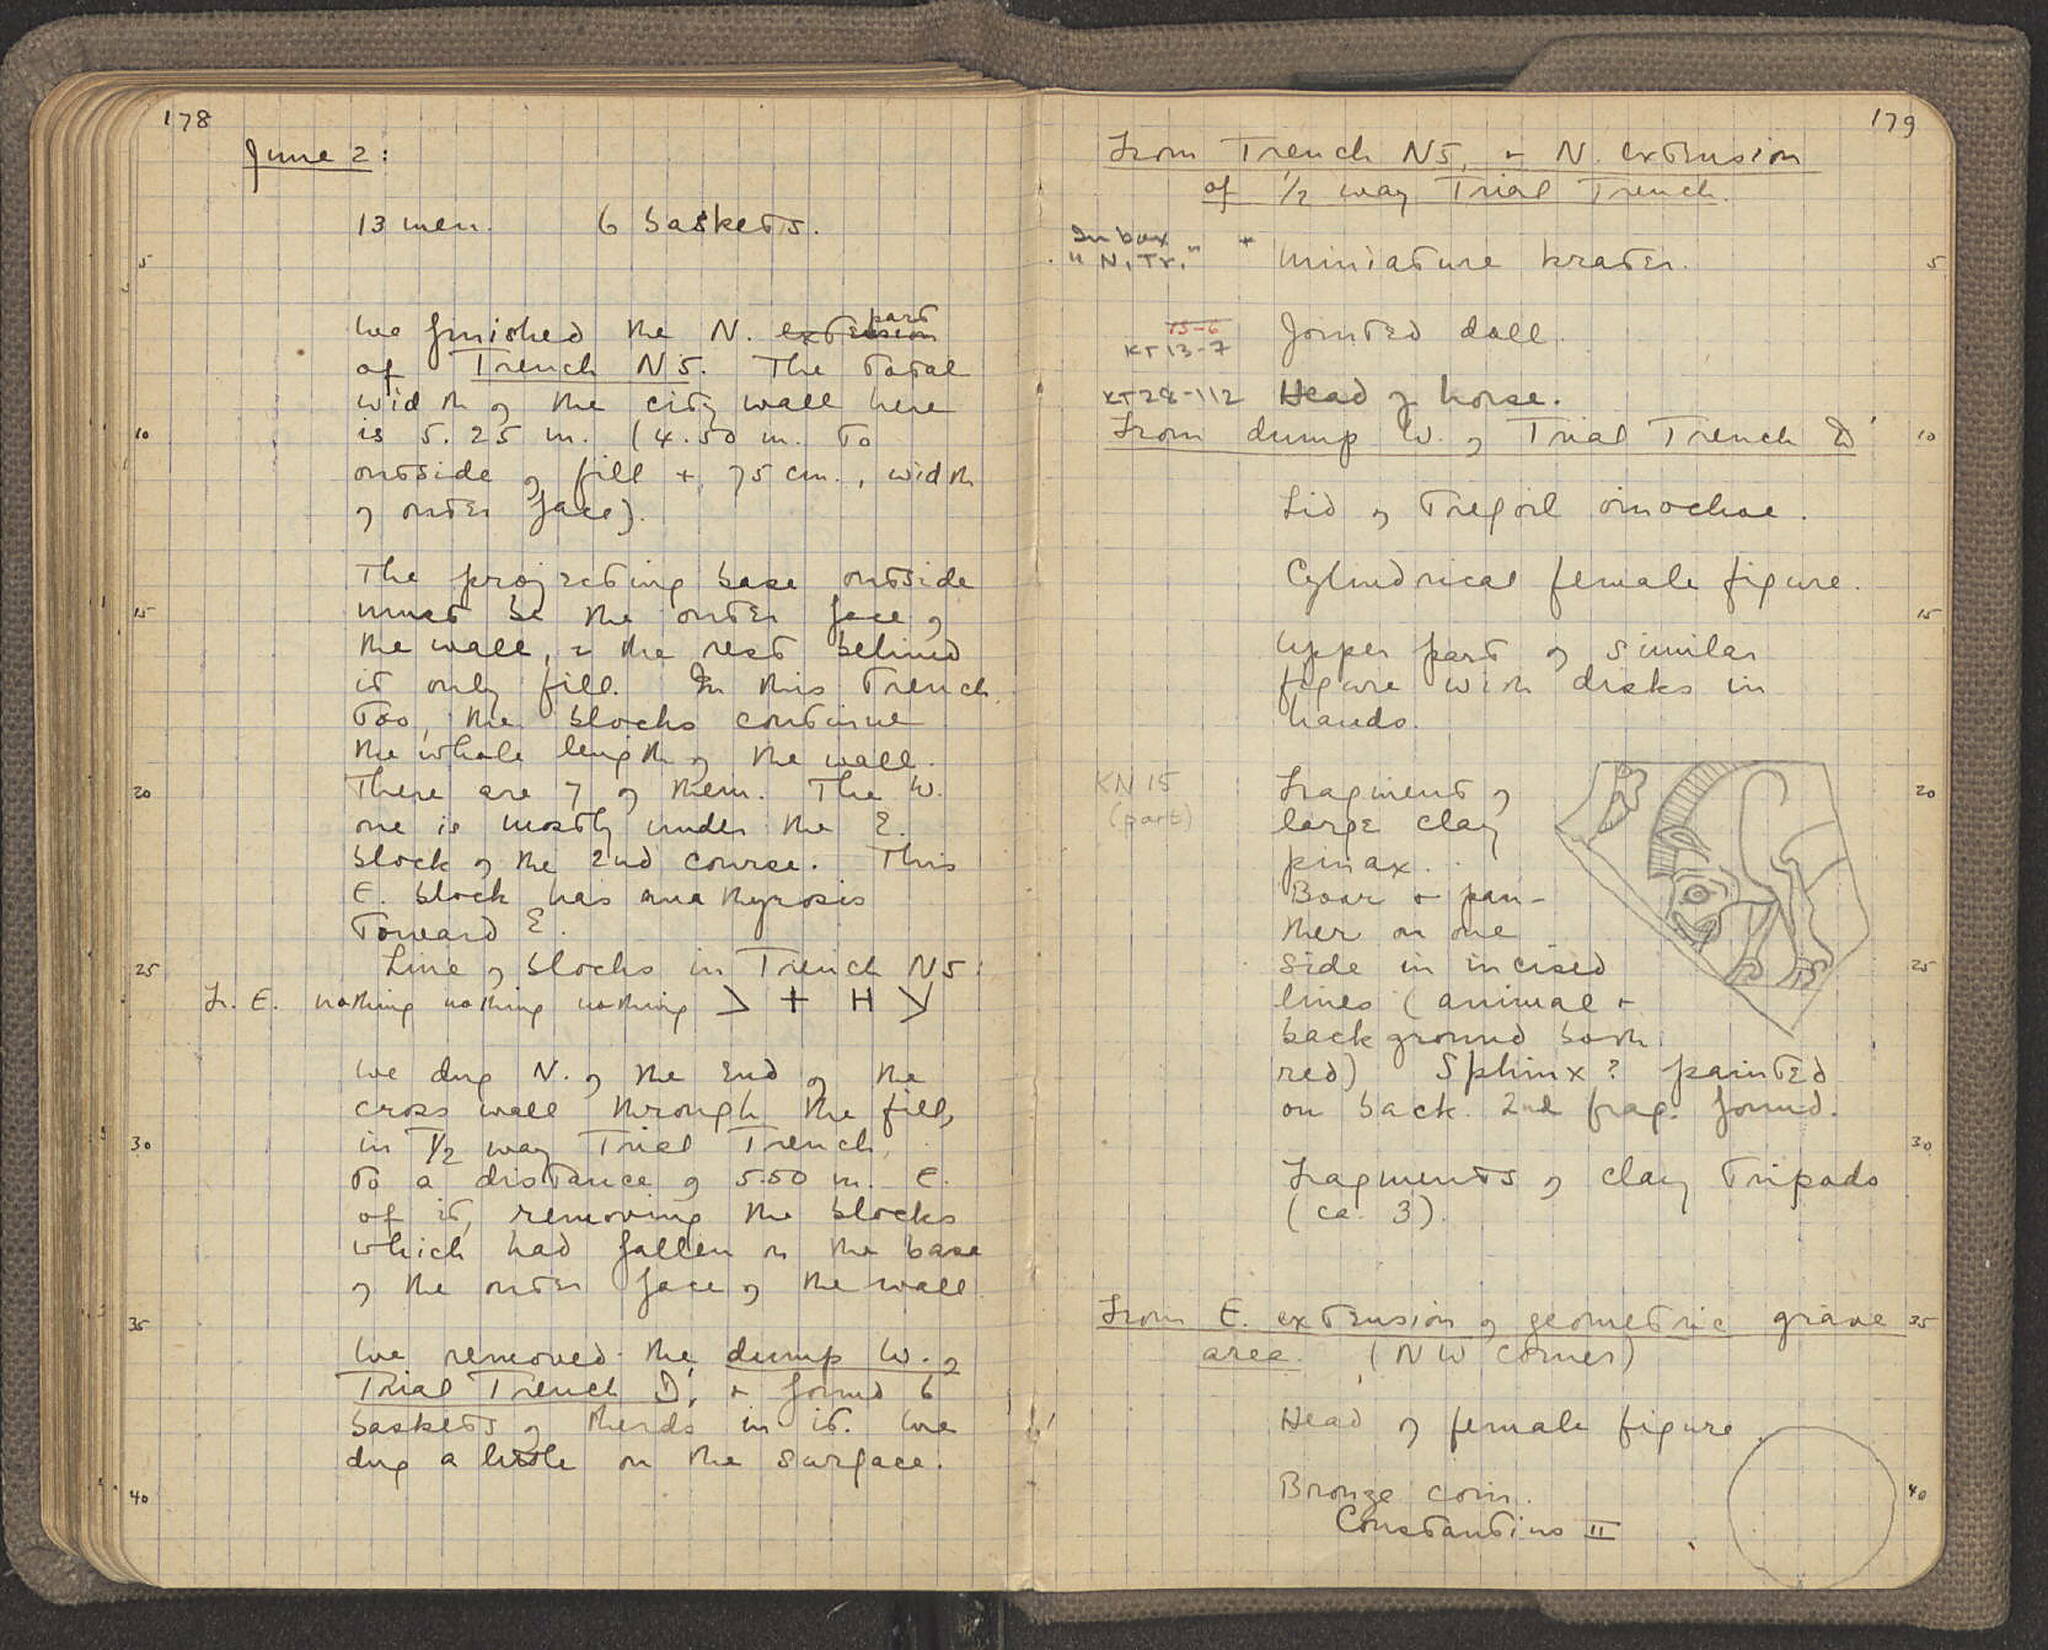 178
June 2:
13 men. 6 baskets.
5
We finished the N. extension part
of Trench N5. The total
width of the city wall here
10 is 5.25 m. (4.50 m. to
outside of fill + 75 cm., width
of outer face).
The projecting base outside
15 must be the outer face of
the wall, & the rest behind
it only fill. In this trench
too, the blocks continue
the whole length of the wall.
20 There are 7 of them. The W.
one is mostly under the E.
block of the 2nd course. This
E. block has anathyrosis
toward E.
25 Line of blocks in Trench N5:
Fr. E. nothing nothing nothing > + H Y
We dug N. of the end of the
cross wall through the fill,
30 in 1/2 way Trial Trench,
to a distance of 5.50 m. E.
of it, removing the blocks
which had fallen on the base
of the outer face of the wall
35
We removed the dump W. of
Trial Trench D', & found 6
baskets of sherds in it. We
dug a little on the surface.
40
179
From Trench N5, & N. extension
of 1/2 way Trial Trench.
In box
"N. Tr." + Miniature krater. 5
15-6
KT 13-7 Jointed doll.
KT 28-112 Head of horse.
From dump W. of Trial Trench D' 10
Lid of trefoil oinochoe.
Cylindrical female figure.
15
Upper part of similar
figure with disks in
hands.
KN 15 Fragment of 20
(part) large clay
pinax.
Boar & pan-
ther on one
side in incised 25
lines (animal &
background both
red) Sphinx? painted
on back. 2nd frag. found.
30
Fragments of clay tripods
(ca. 3).
From E. extension of geometric grave 35
area. (NW corner)
Head of female figure.
Bronze coin. 40
Constantius II